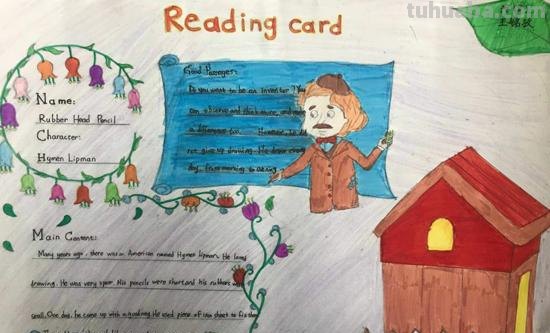 Reading card
tuhuaba.com
Name:
Rubber Head Pencil
Character:
Hymen Lipman
Good Passages:
Do you want to be an inventor? You
can observe and think more, and make
a difference too. However, he did
not give up drawing. He drew every
day, from morning to evening
Main Content:
Many years ago, there was an American named Hymen Lipman. He loved
drawing. He was very poor. His pencils were short and his rubbers were
small. One day, he came up with a good He used piece of iron sheet to fix the